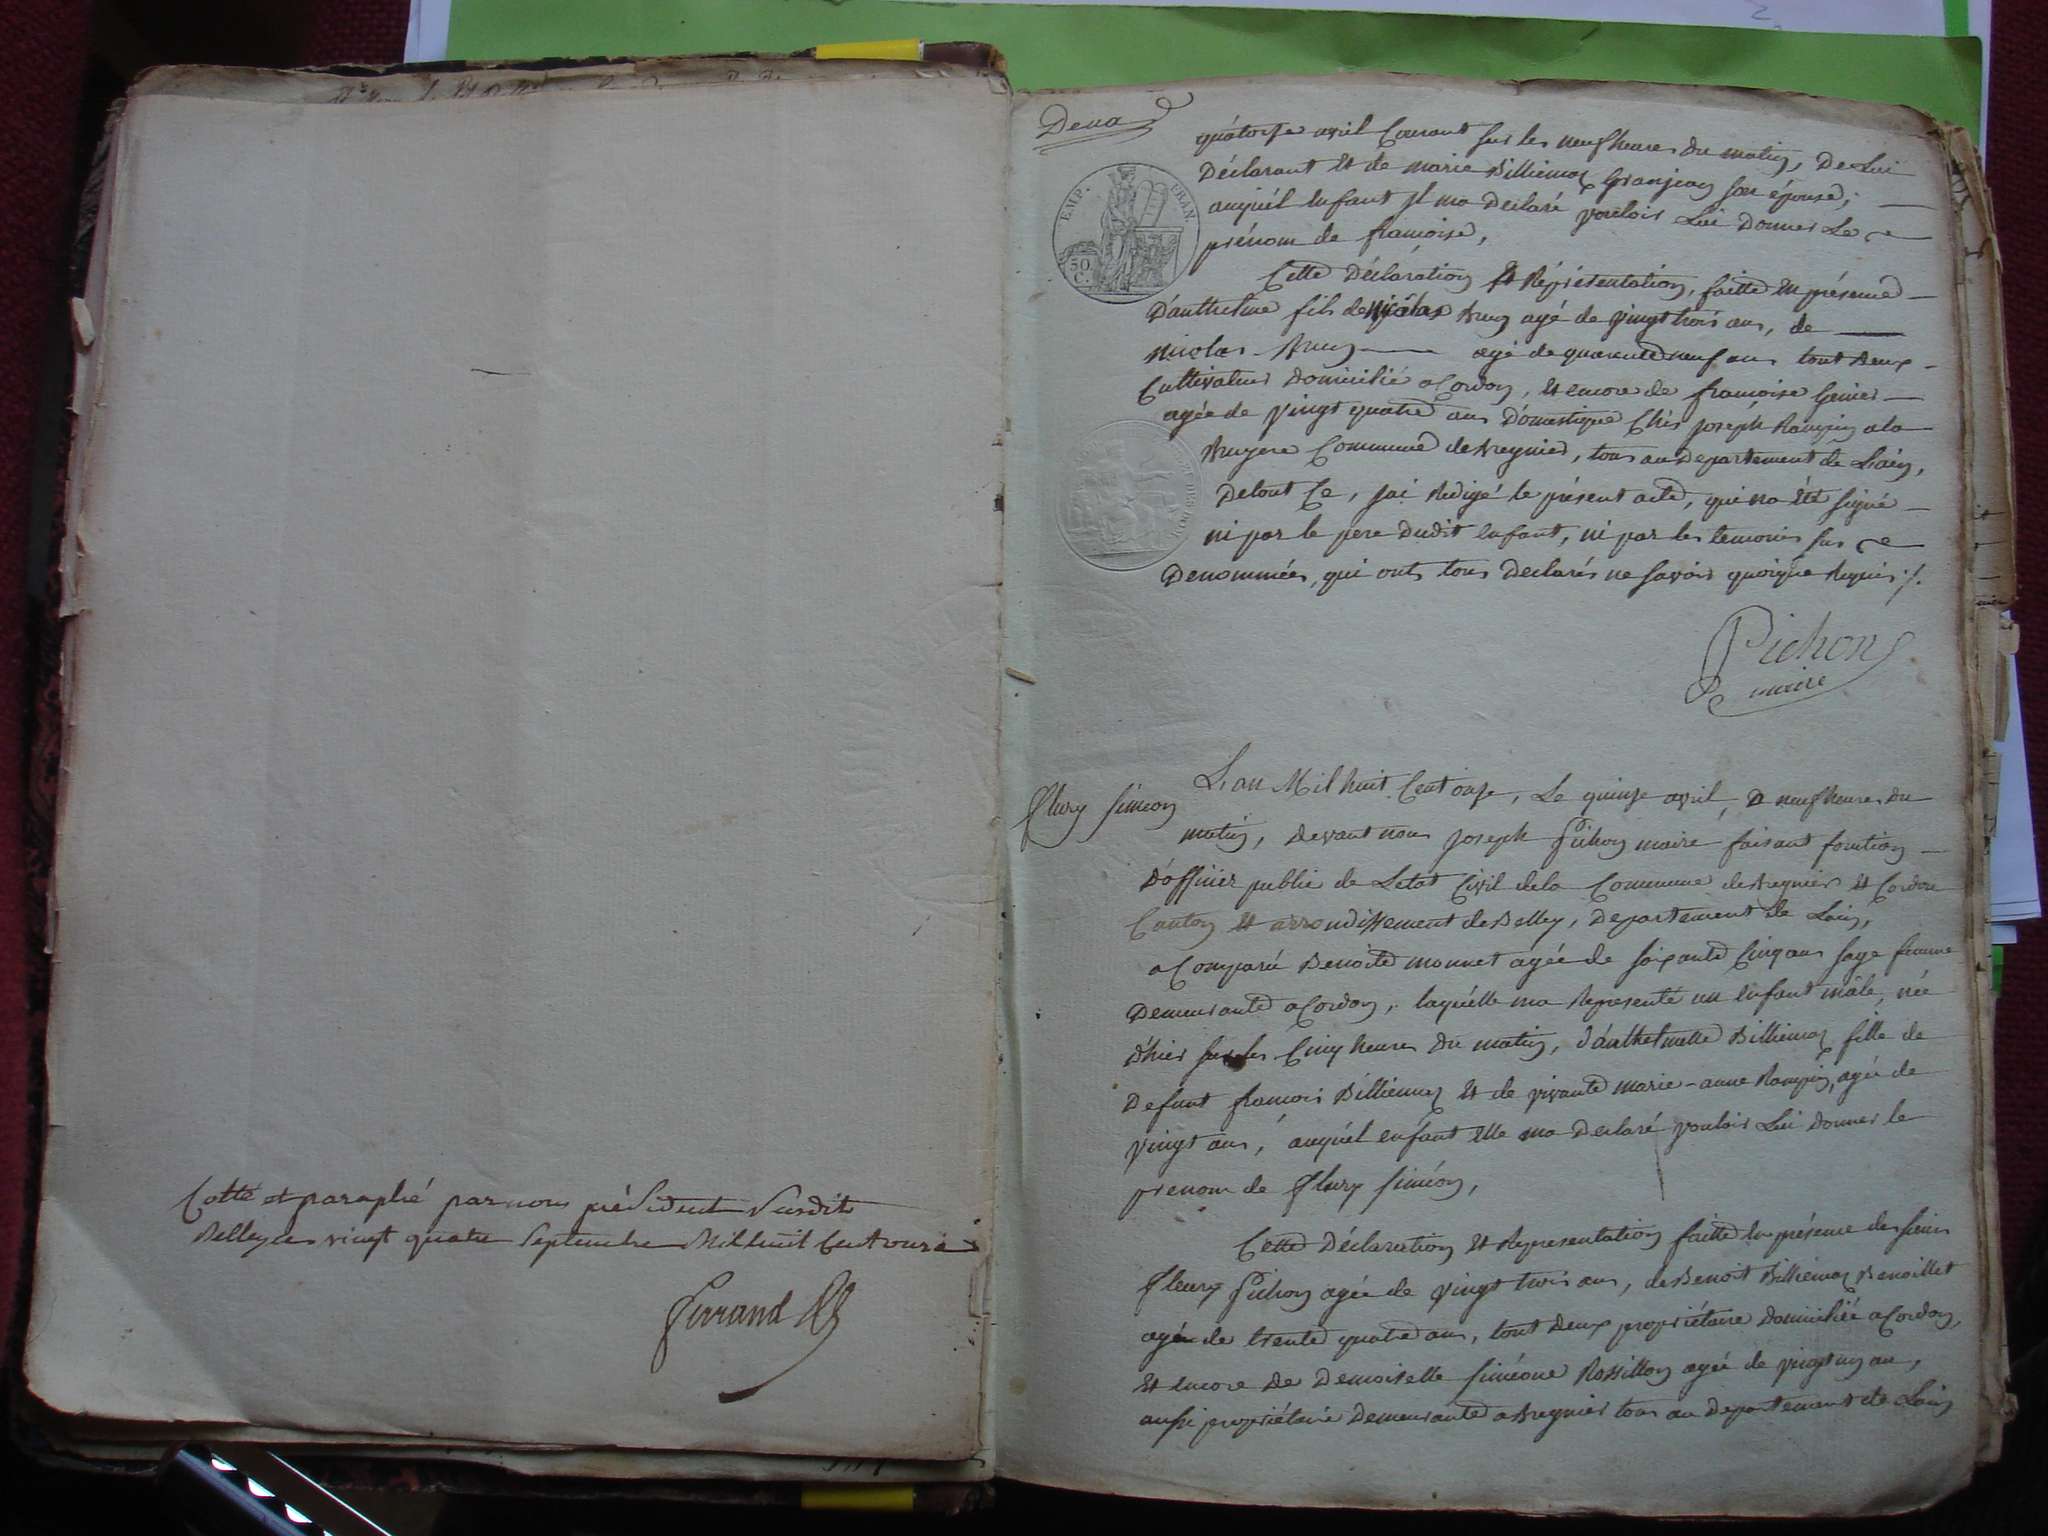 Cotté et paraphé par nous président susdit
Belley ce vingt quatre Septembre Mil huit Cent onze
Deux
EMP. FRAN.
50 C.
quatorze avril Courant sur les neuf heures du matin, De Lui
Déclarant et de marie Billiemaz Granjean son épouse;
auquél Enfant Il m'a Déclaré vouloir Lui Donner Le
prénom de françoise,
Cette Déclaration Et Réprésentation, faitte En présence
D'anthelme fils de Nicolas Brun agé de vingt trois ans, de
Nicolas Brun agé de quarente neuf ans tout Deux
Cultivateur Domicilié a Cordon, Et encore de françoise
agée de vingt quatre ans Doméstique Chés joséph Rampin a la
Bruyere Commune de Bregnier, tous au Departement de L'ain,
De tout Ce, jai Redigé le présent acte, qui n'a Eté signé
ni par le pere Dudit Enfant, ni par les temoins sus
Denommées, qui onts tous Declarés ne savoir quoique Requis ./.
Pichon
maire
fleury siméon
L'an Mil huit Cent onze, Le quinze avril, a neuf heures du
matin, devant nous joseph Pichon maire faisant fonction
D'officier public de L'etat Civil de la Commune de Bregnier et Cordon
Canton Et arrondissement de Belley, Departement de L'ain,
a Comparu Benoite monnet agée de soixante Cinq ans sage femme
Demeurante a Cordon, laquélle m'a Représenté un Enfant mâle, née
D'hier sur les Cinq heures Du matin, d'anthelmette Billiemaz fille de
Defunt francois Billiemaz Et de vivante marie-anne Rampin, agée de
vingt ans, auquél enfant Elle m'a Declaré vouloir Lui donner le
prenom de fleury siméon,
Cette Déclaration Et Representation faitte En présence des sieurs
fleury Pichon agée de vingt trois ans, de Benoit Billiemaz Benoillet
agée de trente quatre ans, tout deux propriétaire Domiciliée a Cordon,
Et encore de Demoiselle siméone Rossillon agée de vingt un an,
aussi propriétaire Demeurante a Bregnier tous au Departement de L'ain